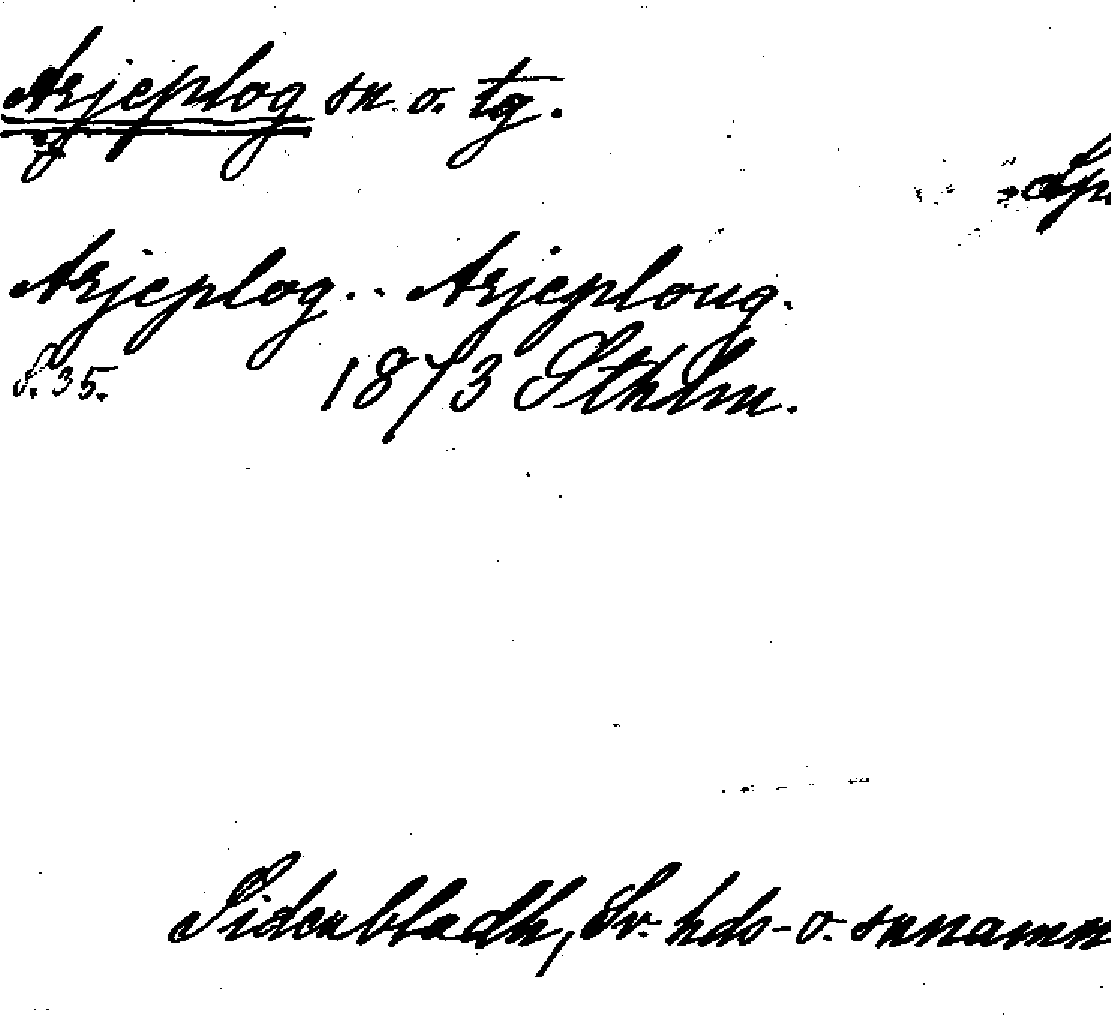 Arjeplog sn. o. tg.
Arjeplog.. Arjeploug.
S. 35. 1873 Sthlm.
Sidenbladh, Sv. hds- o. snnamn